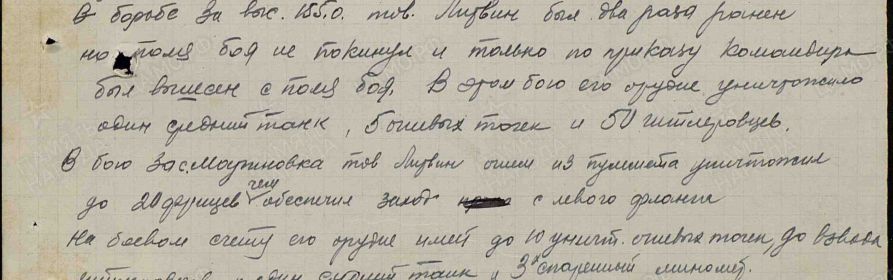 В борьбе за выс. 155.0. тов. Литвин был два раза ранен
но поля боя не покинул и только по приказу командира
был вынесен с поля боя. В этом бою его орудие уничтожило
один средний танк, 5 огневых точек и 50 гитлеровцев.
В бою за с. Мариновка тов Литвин огнем из пулемета уничтожил
до 20 фрицев чем обеспечил заход с левого фланга
На боевом счету его орудие имеет до 10 уничт. огневых точек, до взвода
гитлеровцев и один средний танк и 3х спаренный миномет.